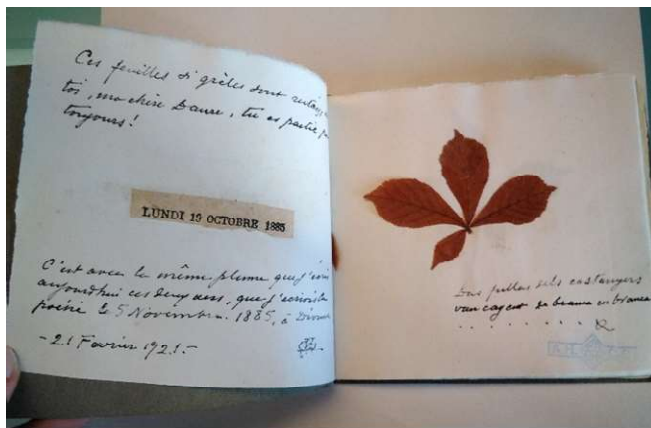 Ces feuilles si grêles sont
toi, ma chère Laure, tu es partie
toujours!
LUNDI 19 OCTOBRE 1885
C'est avec la même plume que j'écris
aujourd'hui ces deux vers, que j'écrivis
poésie le 5 Novembre 1885, à
- 21 Février 1921. -
Las fullas dels castanyers
van cayent de branca en branca
. . . . . . . .